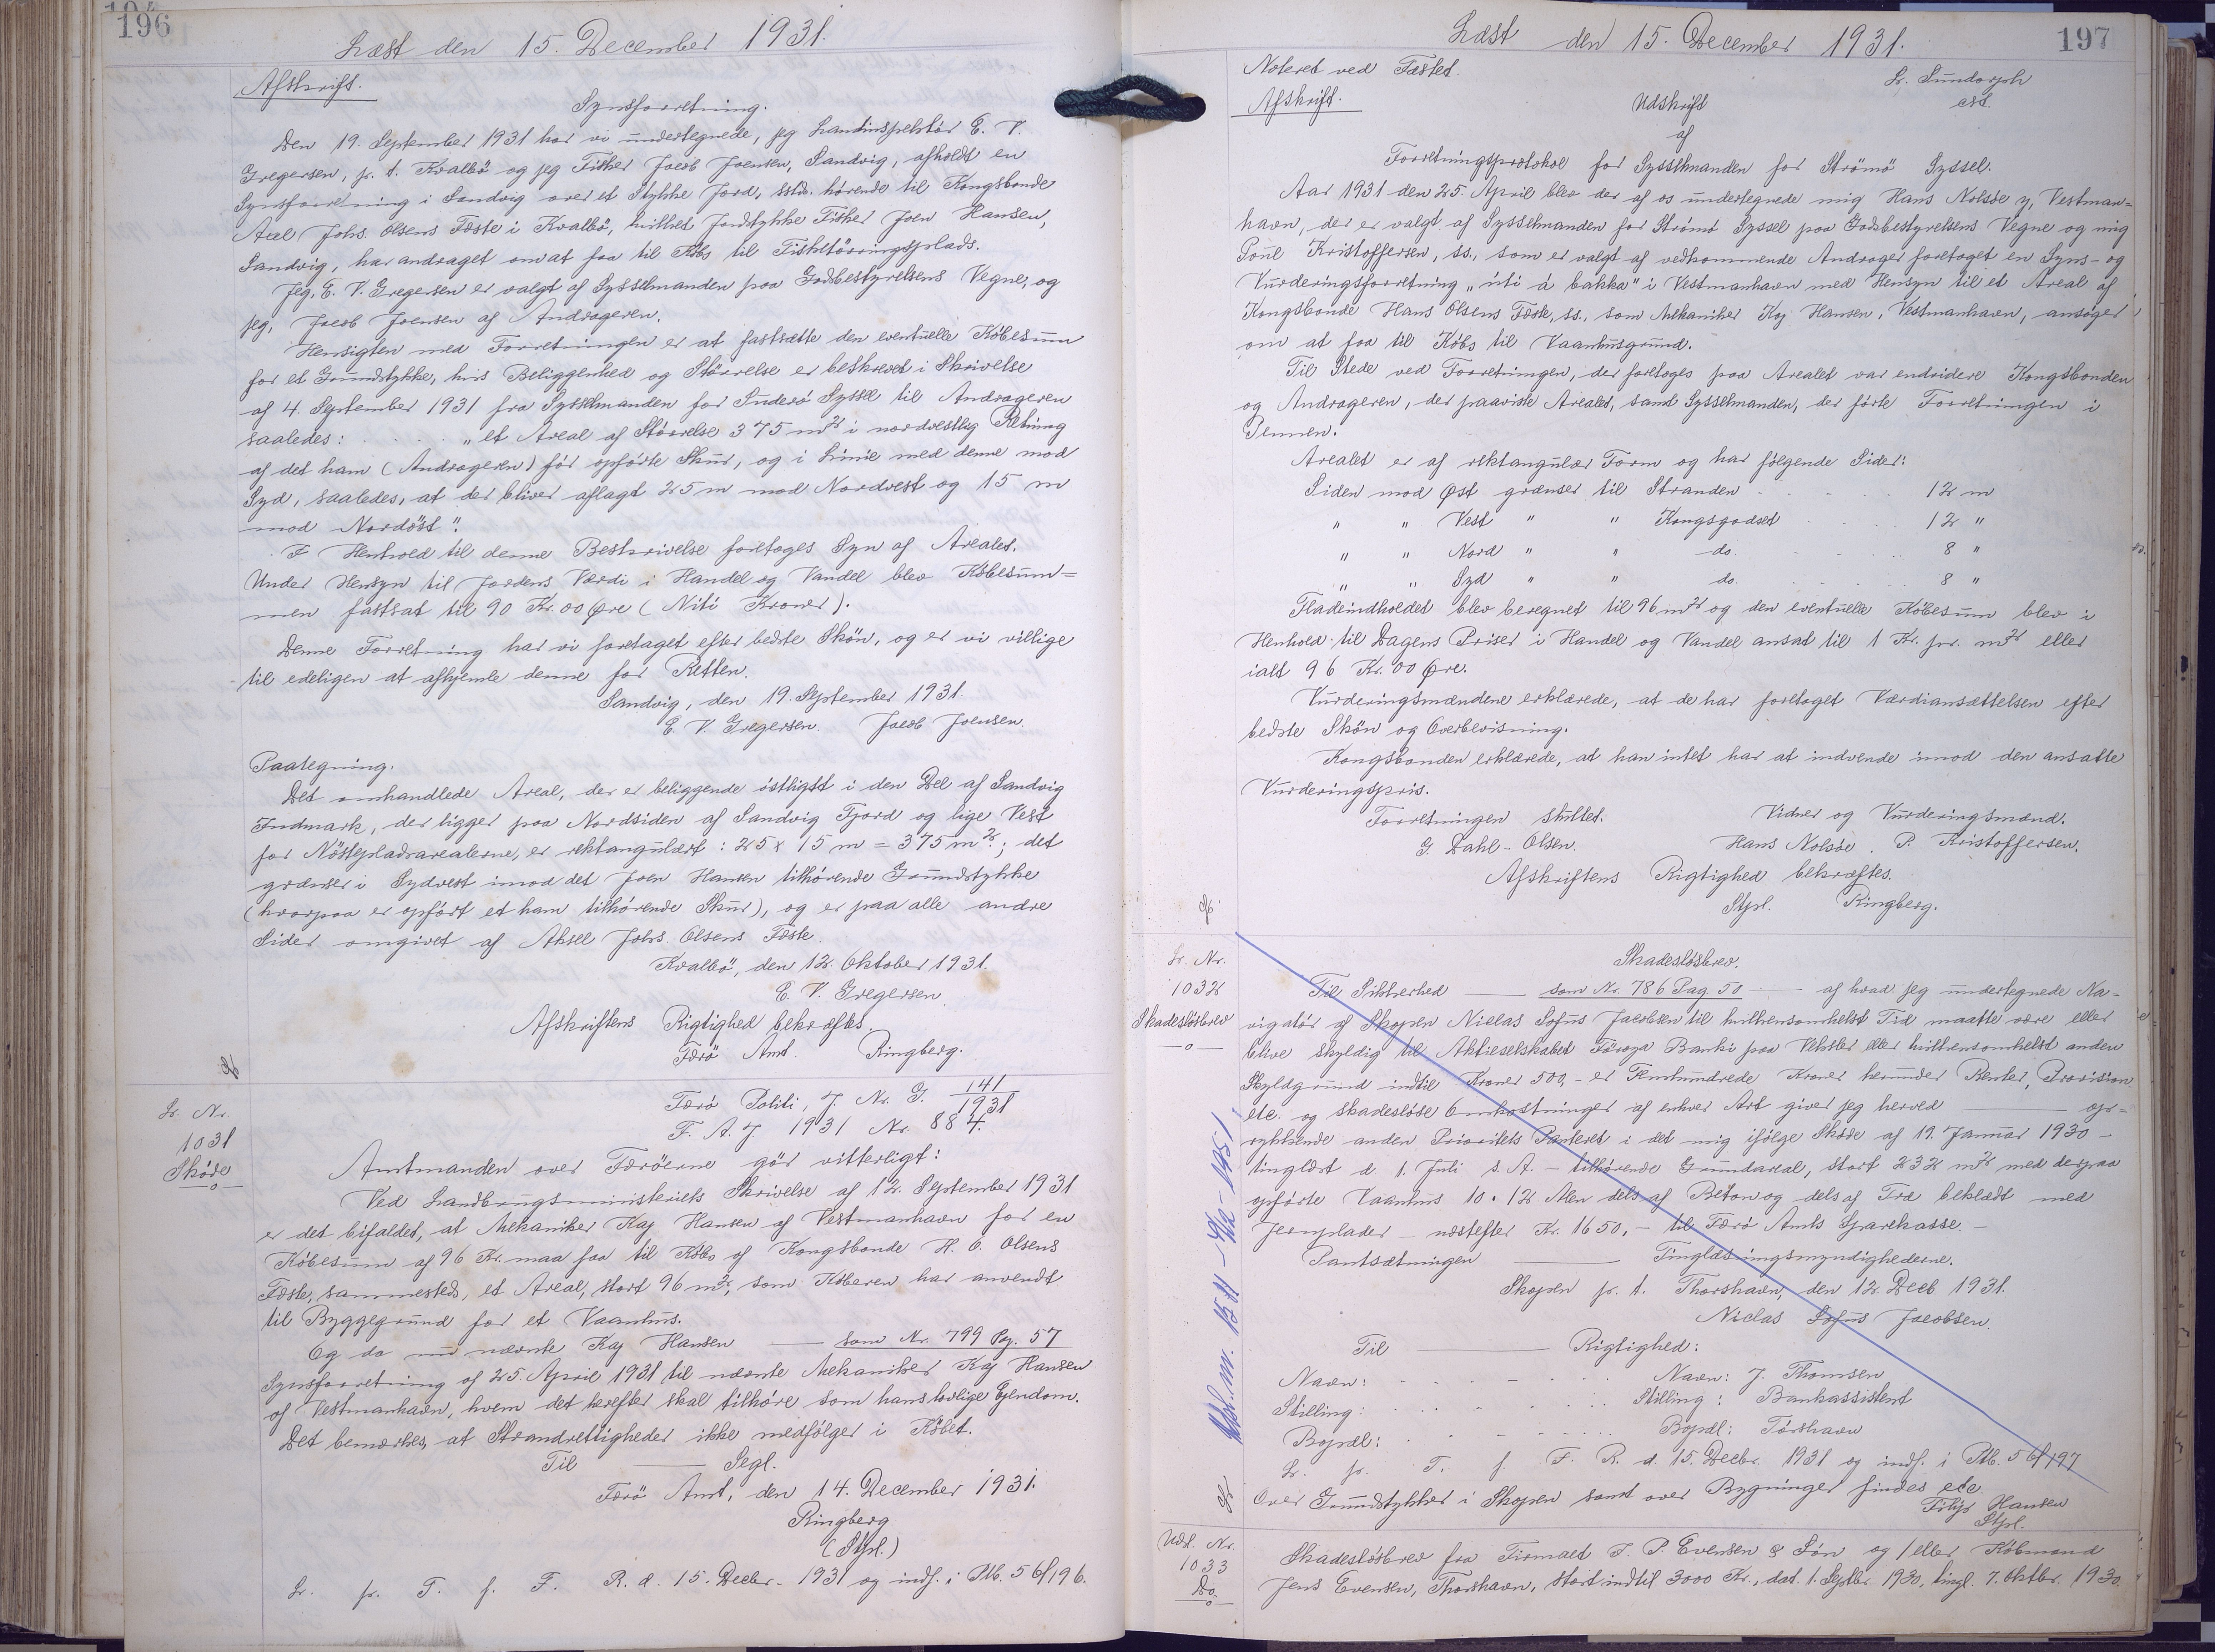 196
Læst den 15. December 1931.
Afskrift.
Synsforretning.
Den 19. September 1931 har vi undertegnede, jeg Landinspektör E. V.
Gregersen, p. t. Kvalbö og jeg Fisker Jacob Joensen, Sandvig, afholdt en
Synsforretning i Sandvig over et Stykke Jord, sstds. hörende til Kongsbonde
Axel Johs. Olsens Fæste i Kvalbö, hvilket Jordstykke Fisker Joen Hansen,
Sandvig, har andraget om at faa til Köbs til Fisketörringsplads.
Jeg, E. V. Gregersen er valgt af Sysselmanden paa Godsbestyrelsens Vegne, og
jeg, Jacob Joensen af Andrageren.
Hensigten med Forretningen er at fastsætte den eventuelle Köbesum
for et Grundstykke, hvis Beliggenhed og Störrelse er beskrevet i Skrivelse
af 4. September 1931 fra Sysselmanden for Suderö Syssel til Andrageren
saaledes: . . . . . „et Areal af Störrelse 375 m² i nordvestlig Retning
af det ham (Andrageren) för opförte Skur, og i Linie med denne mod
Syd, saaledes, at der bliver aflagt 25 m mod Nordvest og 15 m
mod Nordöst".
I Henhold til denne Beskrivelse foretoges Syn af Arealet.
Under Hensyn til Jordens Værdi i Handel og Vandel blev Köbesum=
men fastsat til 90 Kr. 00 Øre (Niti Kroner).
Denne Forretning har vi foretaget efter bedste Skön, og er vi villige
til edeligen at afhjemle denne for Retten.
Sandvig, den 19. September 1931.
E. V. Gregersen. Jacob Joensen.
Paategning.
Det omhandlede Areal, der er beliggende östligst i den Del af Sandvig
Indmark, der ligger paa Nordsiden af Sandvig Fjord og lige Vest
for Nöstepladsarealerne, er rektangulært: 25 x 15 m = 375 m².; det
grænser i Sydvest imod det Joen Hansen tilhörende Grundstykke
(hvorpaa er opfört et ham tilhörende Skur), og er paa alle andre
Sider omgivet af Aksel Johs. Olsens Fæste.
Kvalbö, den 12. Oktober 1931.
E. V. Gregersen.
Afskriftens Rigtighed bekræftes.
Færö Amt. Ringberg.
Lr. Nr.
1031
Sköde
—o—
Færö Politi, J. Nr. G. 141/1931
F. A. J. 1931 Nr. 884.
Amtmanden over Færöerne gör vitterligt:
Ved Landbrugsministeriets Skrivelse af 12. September 1931
er det bifaldet, at Mekaniker Kaj Hansen af Vestmanhavn for en
Köbesum af 96 Kr. maa faa til Köbs af Kongsbonde H. O. Olsens
Fæste, sammesteds, et Areal, stort 96 m², som Köberen har anvendt
til Byggegrund for et Vaanhus.
Og da nu nævnte Kaj Hansen —— som Nr. 799 Pag. 57
Synsforretning af 25. April 1931 til nævnte Mekaniker Kaj Hansen
af Vestmanhavn, hvem det herefter skal tilhöre som hans lovlige Ejendom.
Det bemærkes, at Strandrettigheder ikke medfölger i Köbet.
Til —— Segl.
Færö Amt, den 14. December 1931.
Ringberg
(Stpl.)
Lr. p. T. f. F. R. d. 15. Decbr. 1931 og indf. i Ptb. 56/196.
197
Læst den 15. December 1931.
Noteret ved Fæstet.
Lr. Sundorph
cst.
Afskrift.
Udskrift
af
Forretningsprotokol for Sysselmanden for Strömö Syssel.
Aar 1931 den 25. April blev der af os undertegnede mig Hans Nolsöe y, Vestman=
havn, der er valgt af Sysselmanden for Strömö Syssel paa Godsbestyrelsens Vegne og mig
Poul Kristoffersen, ss., som er valgt af vedkommende Andrager foretaget en Syns- og
Vurderingsforretning „úti á bakka" i Vestmanhavn med Hensyn til et Areal af
Kongsbonde Hans Olsens Fæste, ss., som Mekaniker Kaj Hansen, Vestmanhavn, ansöger
om at faa til Köbs til Vaanhusgrund.
Til Stede ved Forretningen, der foretoges paa Arealet var endvidere Kongsbonden
og Andrageren, der paaviste Arealet, samt Sysselmanden, der förte Forretningen i
Pennen.
Arealet er af rektangulær Form og har fölgende Sider:
Siden mod Øst grænser til Stranden . . . . . 12 m
" " Vest " " Kongsgodset . . . . 12 "
" " Nord " " do. . . . . 8 "
" " Syd " " do. . . . . 8 "
Fladeindholdet blev beregnet til 96 m² og den eventuelle Köbesum blev i
Henhold til Dagens Priser i Handel og Vandel ansat til 1 Kr. pr. m² eller
ialt 96 Kr. 00 Øre.
Vurderingsmændene erklærede, at de har foretaget Værdiansættelsen efter
bedste Skön og Overbevisning.
Kongsbonden erklærede, at han intet har at indvende imod den ansatte
Vurderingspris.
Forretningen sluttet. Vidner og Vurderingsmænd.
G. Dahl-Olsen. Hans Nolsöe. P. Kristoffersen.
Afskriftens Rigtighed bekræftes.
Stpl. Ringberg.
Lr. Nr.
1032
Skadeslösbrev
—o—
Skadeslösbrev.
Til Sikkerhed —— som Nr. 786 Pag. 50 —— af hvad jeg undertegnede Na-
vigatör af Skopen Niclas Sofus Jacobsen til hvilkensomhelst Tid maatte være eller
blive skyldig til Aktieselskabet Föroya Banki paa Veksler eller hvilkensomhelst anden
Skyldgrund indtil Kroner 500,- er Femhundrede Kroner herunder Renter, Provision
etc. og skadeslöse Omkostninger af enhver Art giver jeg herved —— op-
rykkende anden Prioritets Panteret i det mig ifölge Sköde af 19. Januar 1930 -
tinglæst d. 1. Juli s. A. - tilhörende Grundareal, stort 232 m² med derpaa
opförte Vaanhus 10 • 12 Alen dels af Beton og dels af Træ beklædt med
Jernplader - næstefter Kr. 1650,- til Færö Amts Sparekasse -
Pantsætningen —— Tinglæsningsmyndighederne.
Skopen p. t. Thorshavn, den 12. Decb. 1931.
Niclas Sofus Jacobsen.
Til —— Rigtighed:
Navn: . . . . . . Navn: J. Thomsen
Stilling: . . . . . . Stilling: Bankassistent
Bopæl: . . . . . . Bopæl: Tórshavn
Lr. p. T. f. F. R. d. 15. Decbr. 1931 og indf. i Ptb. 56/197
Over Grundstykker i Skopen samt over Bygninger findes etc.
Filip Hansen
Stpl.
Udsl. Nr.
1033
Do.
—o—
Skadeslösbrev fra Firmaet J. P. Evensen & Sön og/eller Köbmand
Jens Evensen, Thorshavn, stort indtil 3000 Kr., dat. 1. Septbr. 1930, tingl. 7. Oktbr. 1930.